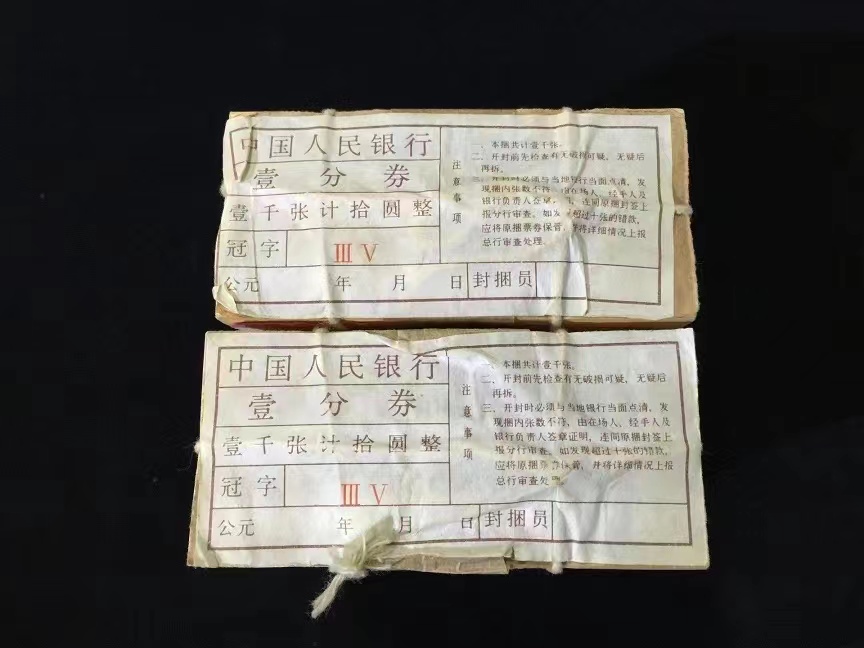 中国人民银行
壹分券
壹千张计拾圆整
冠字 ⅢⅤ
公元 年 月 日 封捆员
注意事项
一、本捆共计壹千张。
二、开封前先检查有无破损可疑，无疑后
再拆。
三、开封时必须与当地银行当面点清，发
现捆内张数不符，由在场人、经手人及
银行负责人签章 ，连同原捆封签上
报分行审查。如发 超过十张的错款，
应将原捆票券保管，并将详细情况上报
总行审查处理。
中国人民银行
壹分券
壹千张计拾圆整
冠字 ⅢⅤ
公元 年 月 日 封捆员
注意事项
一、本捆共计壹千张。
二、开封前先检查有无破损可疑，无疑后
再拆。
三、开封时必须与当地银行当面点清，发
现捆内张数不符，由在场人、经手人及
银行负责人签章证明，连同原捆封签上
报分行审查。如发现超过十张的错款，
应将原捆票券保管，并将详细情况上报
总行审查处理。